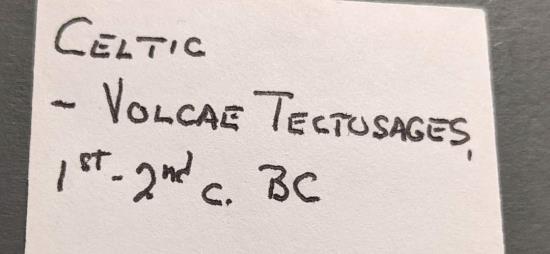 CELTIC
- VOLCAE TECTOSAGES,
1st-2nd c. BC